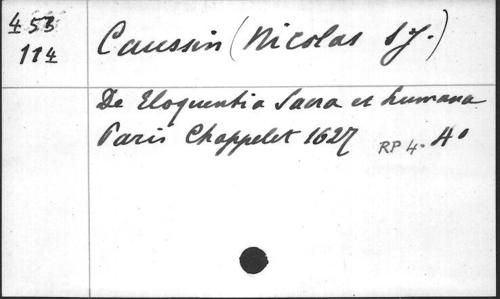 453
114
Caussin (Nicolas S.J.)
De Eloquentia Sacra et humana
Paris Chappelet 1627 RP 4. 4°